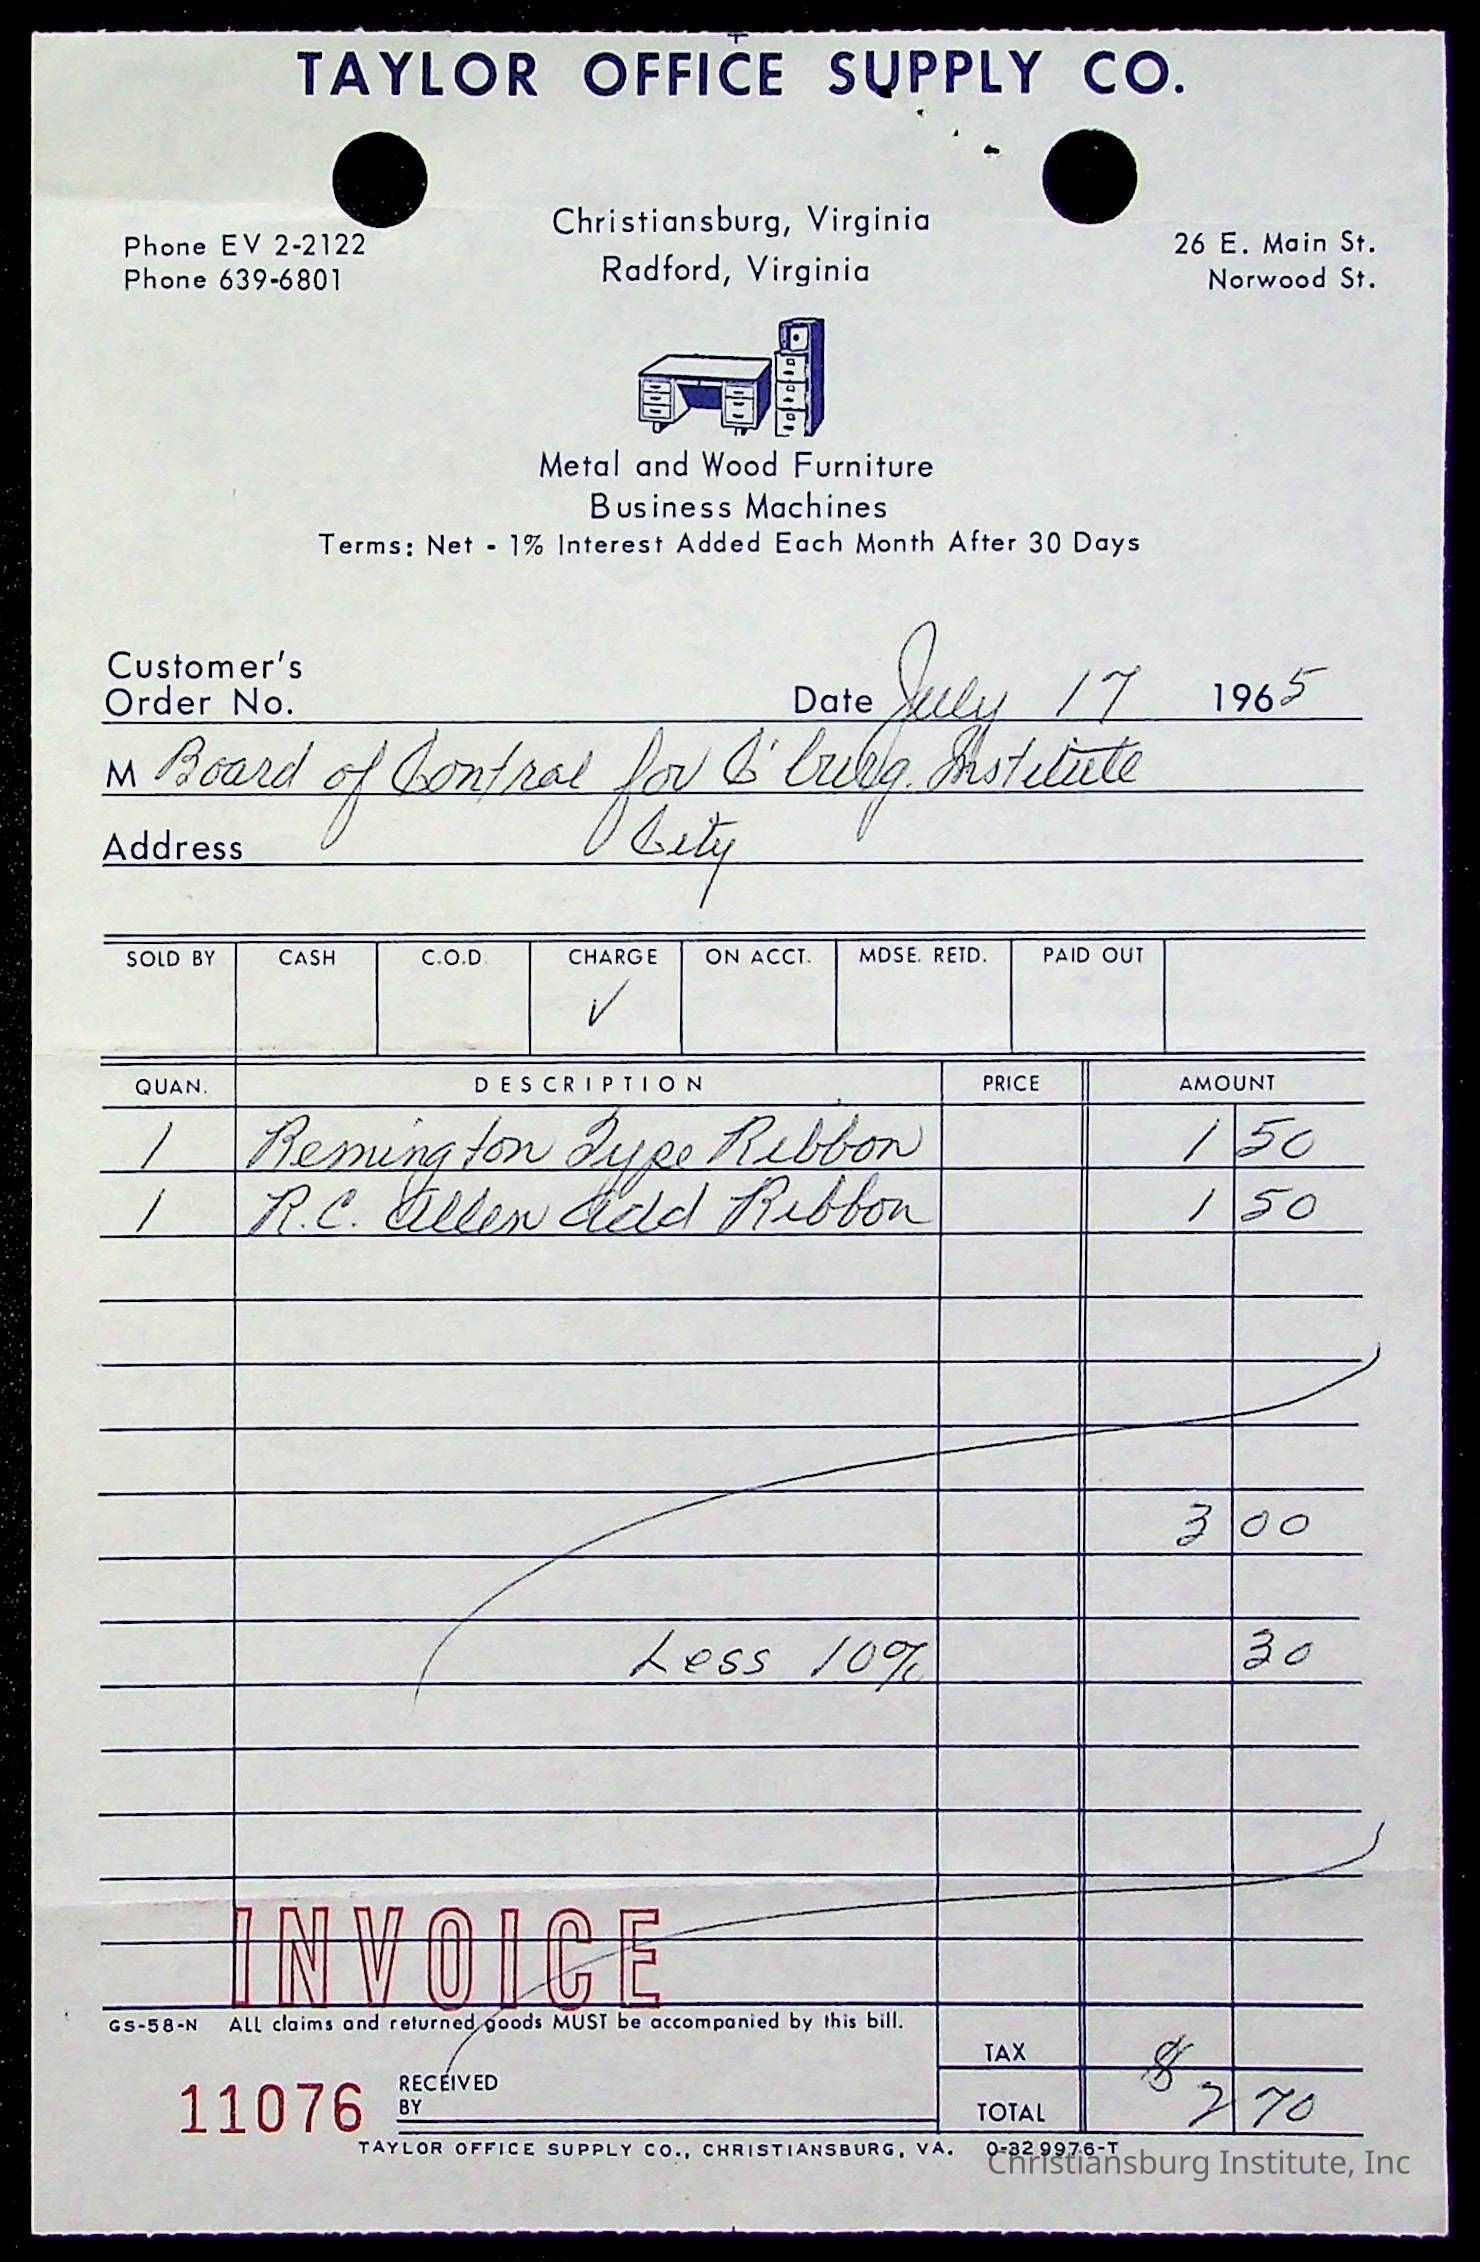 TAYLOR OFFICE SUPPLY CO.
Christiansburg, Virginia
Radford, Virginia
Phone EV 2-2122
Phone 639-6801
26 E. Main St.
Norwood St.
Metal and Wood Furniture
Business Machines
Terms: Net - 1% Interest Added Each Month After 30 Days
Customer's
Order No.
Date July 17 1965
M Board of Control for C'burg. Institute
Address City
SOLD BY CASH C.O.D. CHARGE ON ACCT. MDSE. RETD. PAID OUT
✓
QUAN. DESCRIPTION PRICE AMOUNT
1 Remington Type Ribbon 1 50
1 R.C. Allen Add Ribbon 1 50
3 00
Less 10% 30
INVOICE
GS-58-N ALL claims and returned goods MUST be accompanied by this bill.
TAX
11076 RECEIVED
BY
TOTAL $ 2 70
TAYLOR OFFICE SUPPLY CO., CHRISTIANSBURG, VA. O-329976-T
Christiansburg Institute, Inc